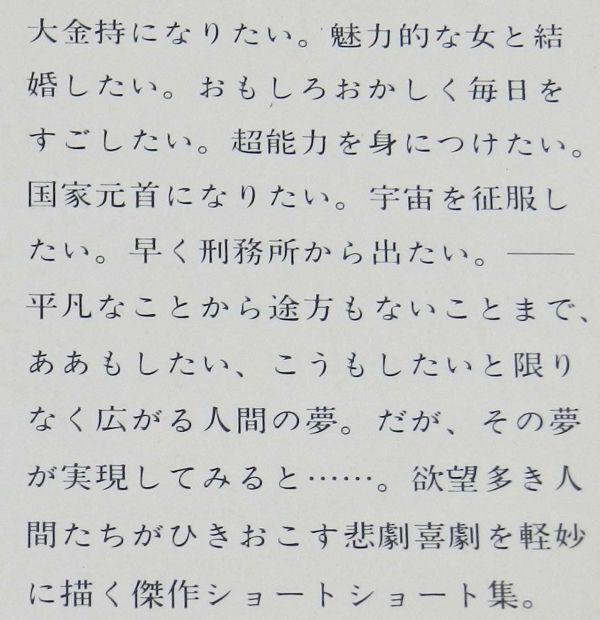 大金持になりたい。魅力的な女と結
婚したい。おもしろおかしく毎日を
すごしたい。超能力を身につけたい。
国家元首になりたい。宇宙を征服し
たい。早く刑務所から出たい。――
平凡なことから途方もないことまで、
ああもしたい、こうもしたいと限り
なく広がる人間の夢。だが、その夢
が実現してみると……。欲望多き人
間たちがひきおこす悲劇喜劇を軽妙
に描く傑作ショートショート集。